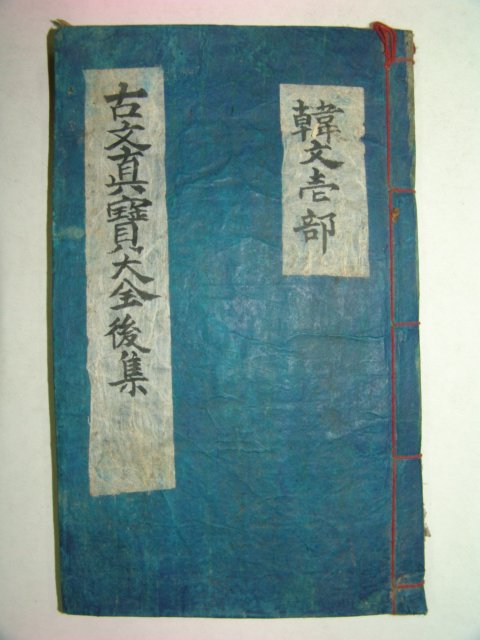 韓文壱部
古文真寶大全後集